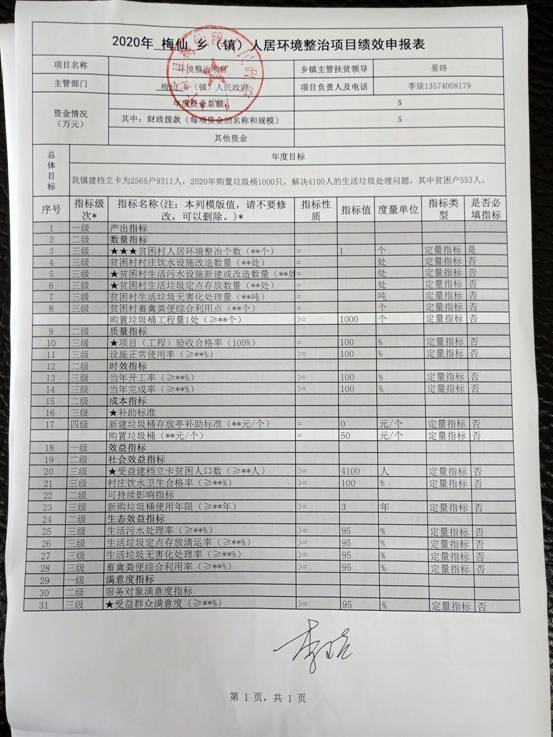 2020年 梅仙 乡（镇）人居环境整治项目绩效申报表
项目名称 环境整治项目 乡镇主管扶贫领导 晏路
主管部门 梅仙 乡（镇）人民政府 项目负责人及电话 李琰13574008179
资金情况（万元） 年度资金总额： 5
其中：财政拨款（每项资金的名称和规模） 5
其他资金
总体目标 年度目标
我镇建档立卡为2565户9311人，2020年购置垃圾桶1000只，解决4100人的生活垃圾处理问题，其中贫困户553人。
序号 指标级次* 指标名称(注：本列模版值，请不要修改，可以删除。)* 指标性质 指标值 度量单位 指标类型 是否必填指标
1 一级 产出指标
2 二级 数量指标
3 三级 ★★★贫困村人居环境整治个数（**个） = 1 个 定量指标 是
4 三级 贫困村村庄饮水设施改造数量（**处） = 处 定量指标 否
5 三级 ★贫困村生活污水设施新建或改造数量（**处 = 处 定量指标 否
6 三级 ★贫困村生活垃圾定点存放数量（**处） = 处 定量指标 否
7 三级 贫困村生活垃圾无害化处理量（**吨） = 吨 定量指标 否
8 三级 贫困村畜禽粪便综合利用点（**个） = 个 定量指标 否
购置垃圾桶工程量1处（≥**个） >= 1000 个 定量指标 否
9 二级 质量指标
10 三级 ★项目（工程）验收合格率（100%） >= 100 % 定量指标 否
11 三级 设施正常使用率（≥**%） >= 100 % 定量指标 否
12 二级 时效指标
13 三级 当年开工率（≥**%） >= 100 % 定量指标 否
14 三级 当年完成率（≥**%） >= 100 % 定量指标 否
15 二级 成本指标
16 三级 ★补助标准
17 四级 新建垃圾桶存放亭补助标准（**元/个） = 0 元/个 定量指标 否
购置垃圾桶（**元/个） = 50 元/个 定量指标 否
18 一级 效益指标
19 二级 社会效益指标
20 三级 ★受益建档立卡贫困人口数（≥**人） >= 4100 人 定量指标 否
21 三级 村庄饮水卫生合格率（≥**%） >= 100 % 定量指标 否
22 二级 可持续影响指标
23 三级 新购垃圾桶使用年限（≥**年） >= 3 年 定量指标 否
24 二级 生态效益指标
25 三级 生活污水处理率（≥**%） >= 95 % 定量指标 否
26 三级 生活垃圾定点存放清运率（≥**%） >= 95 % 定量指标 否
27 三级 生活垃圾无害化处理率（≥**%） >= 95 % 定量指标 否
28 三级 畜禽粪便综合利用率（≥**%） >= 95 % 定量指标 否
29 一级 满意度指标
30 二级 服务对象满意度指标
31 三级 ★受益群众满意度（≥**%） >= 95 % 定量指标 否
第 1 页，共 1 页